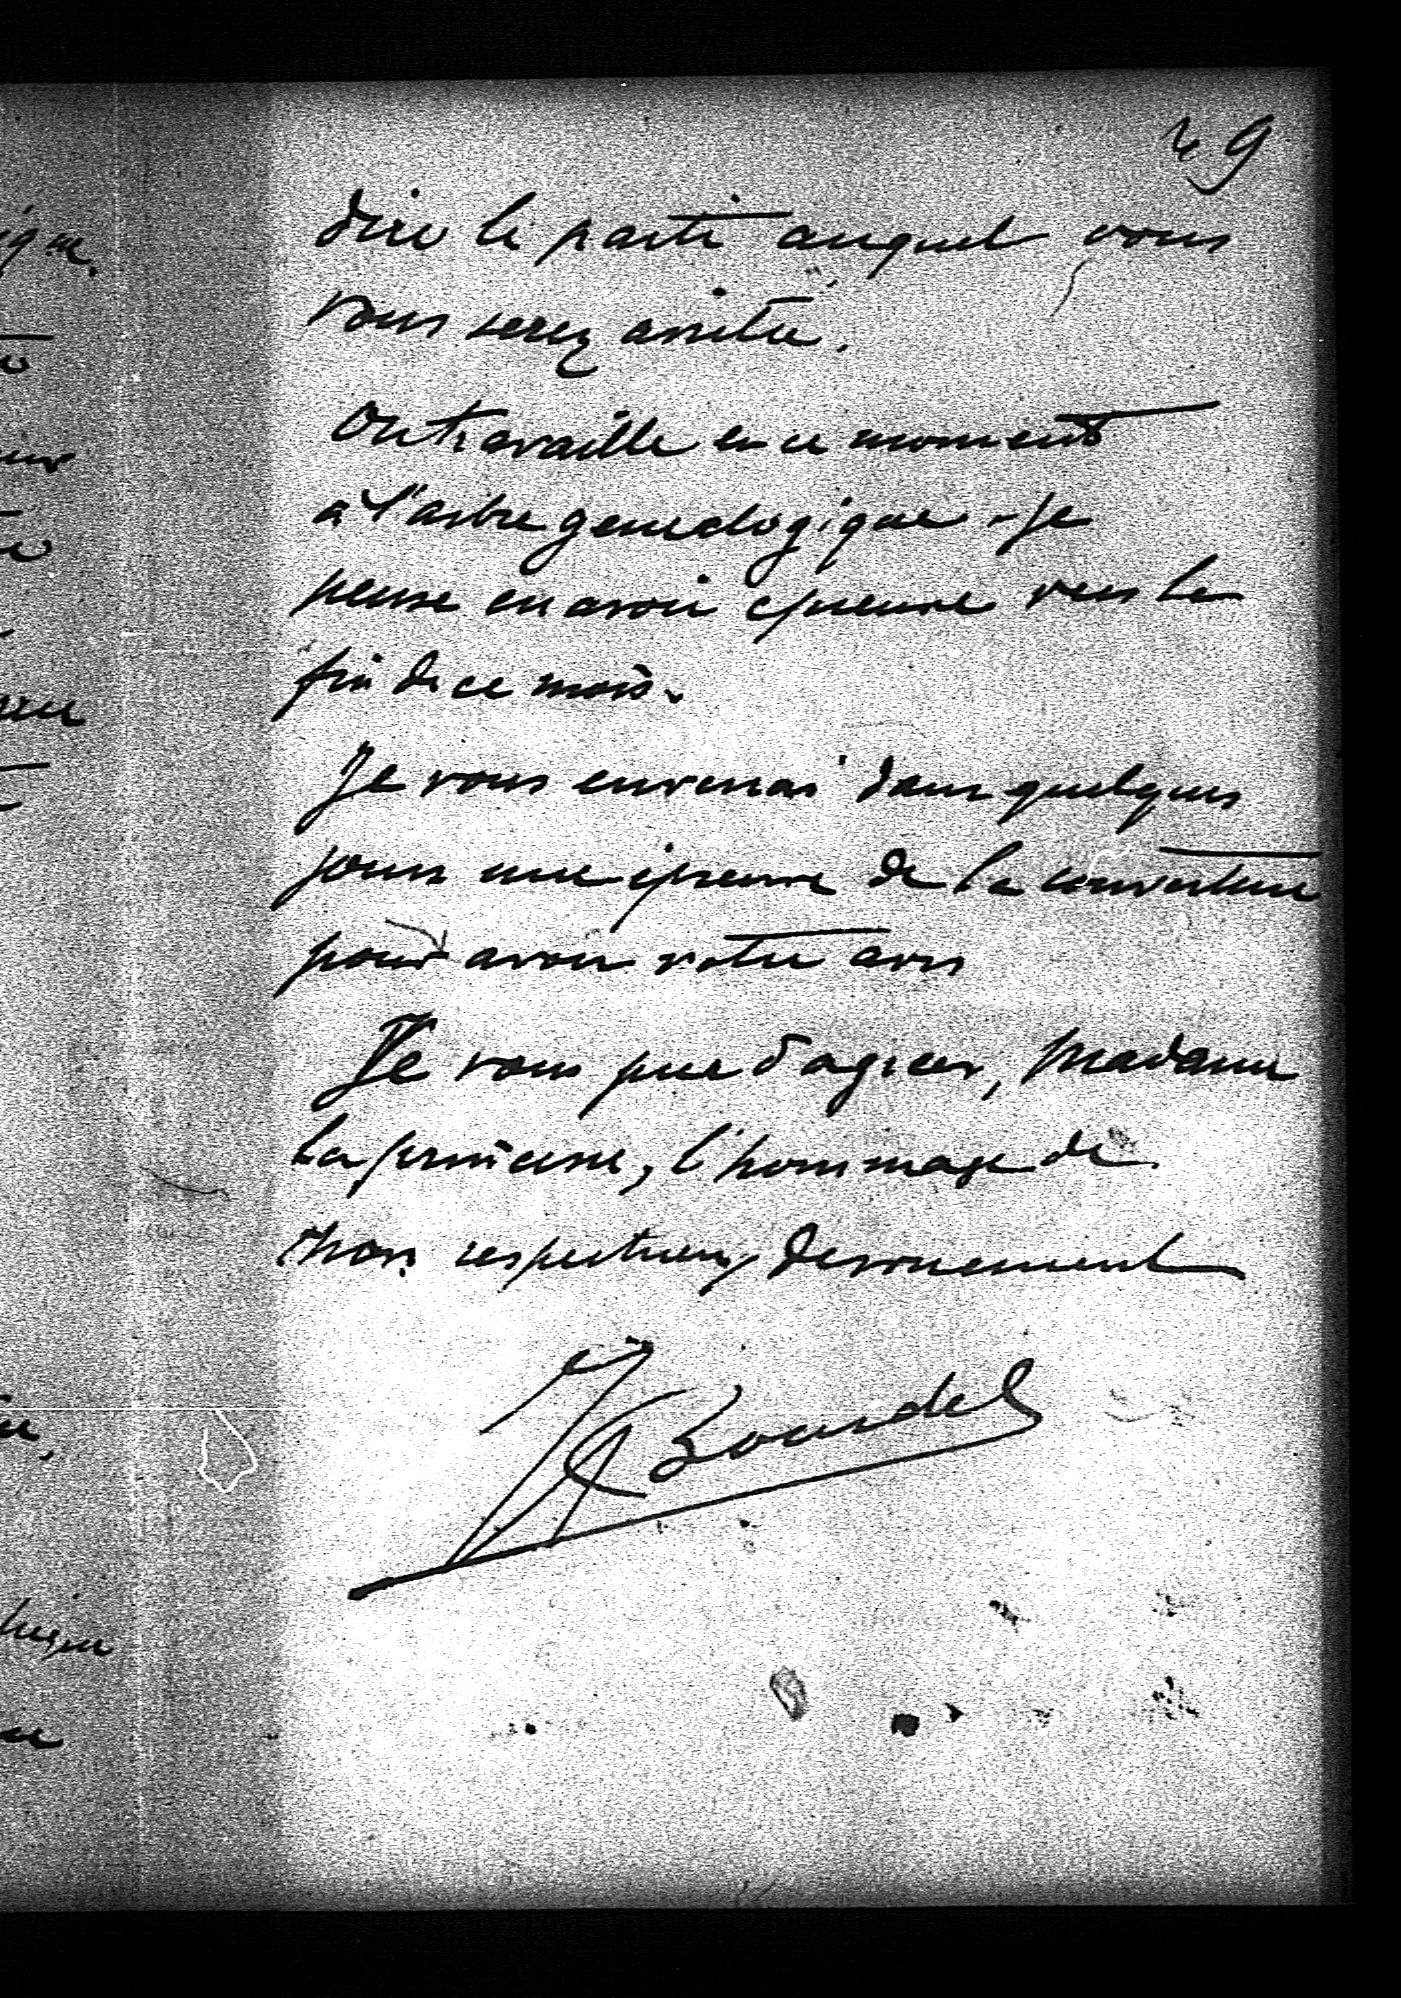 49
dire le parti auquel vous
vous serez arrêtée.
On travaille en ce moment
à l'arbre genealogique - Je
pense en avoir epreuve vers la
fin de ce mois.
Je vous enverrai dans quelques
jours une épreuve de la couverture
pour avoir votre avis
Je vous prie d'agréer, Madame
la princesse, l'hommage de
mon respectueux devouement
Bourdel